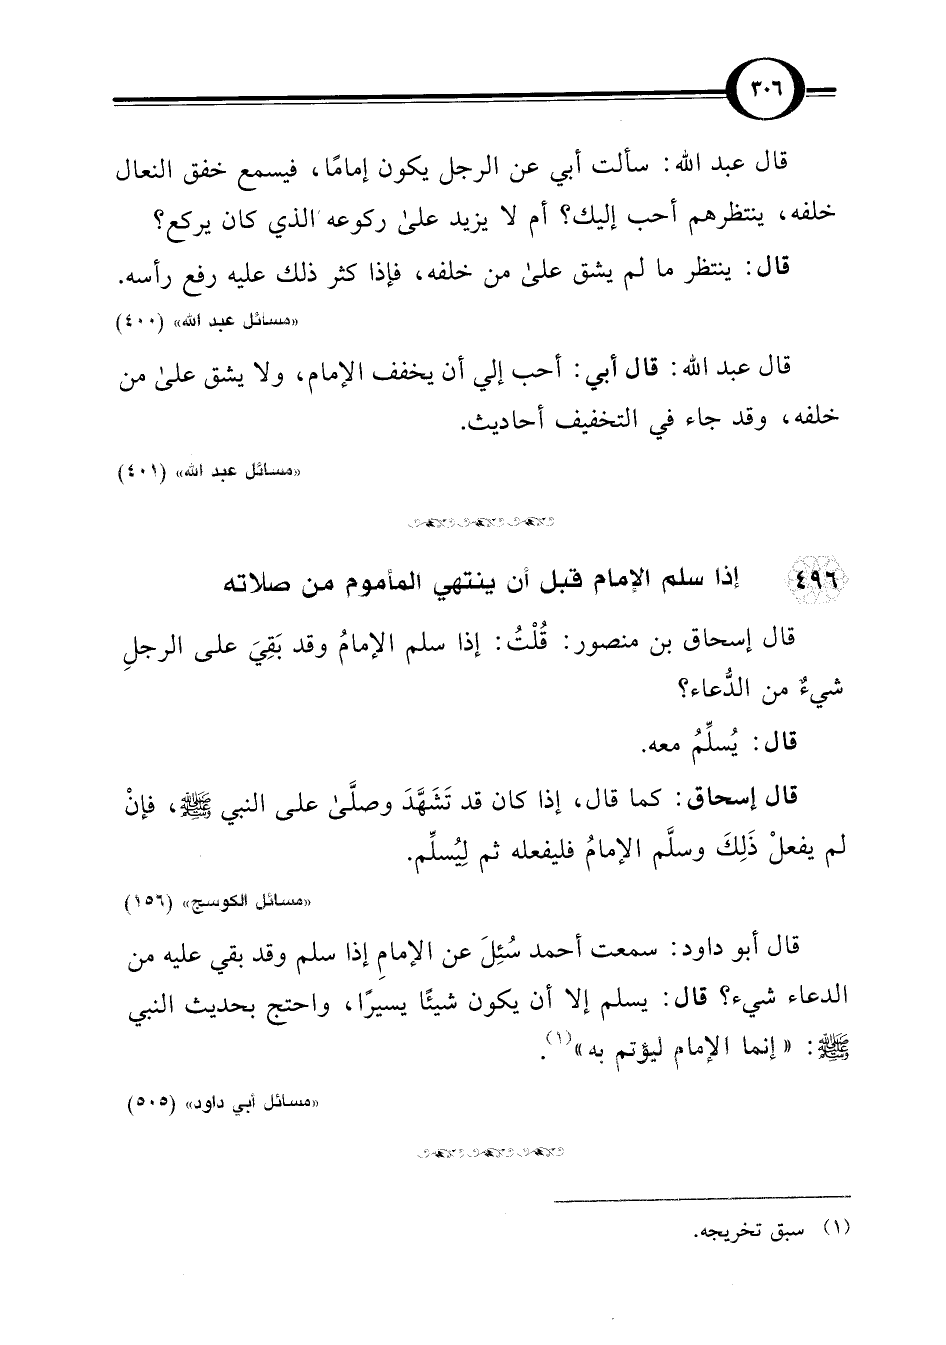 ٣٠٦
قال عبد الله: سألت أبي عن الرجل يكون إمامًا، فيسمع خفق النعال
خلفه، ينتظرهم أحب إليك؟ أم لا يزيد علىٰ ركوعه الذي كان يركع؟
قال: ينتظر ما لم يشق علىٰ من خلفه، فإذا كثر ذلك عليه رفع رأسه.
«مسائل عبد الله» (٤٠٠)
قال عبد الله: قال أبي: أحب إلي أن يخفف الإمام، ولا يشق علىٰ من
خلفه، وقد جاء في التخفيف أحاديث.
«مسائل عبد الله» (٤٠١)
٤٩٦ إذا سلم الإمام قبل أن ينتهي المأموم من صلاته
قال إسحاق بن منصور: قُلْتُ: إذا سلم الإمامُ وقد بَقِيَ على الرجلِ
شيءٌ من الدُّعاء؟
قال: يُسلِّمُ معه.
قال إسحاق: كما قال، إذا كان قد تَشَهَّدَ وصلَّىٰ على النبي ﷺ، فإنْ
لم يفعلْ ذَلِكَ وسلَّم الإمامُ فليفعله ثم لِيُسلِّم.
«مسائل الكوسج» (١٥٦)
قال أبو داود: سمعت أحمد سُئِلَ عن الإمامِ إذا سلم وقد بقي عليه من
الدعاء شيء؟ قال: يسلم إلا أن يكون شيئًا يسيرًا، واحتج بحديث النبي
ﷺ: «إنما الإمام ليؤتم به»(١).
«مسائل أبي داود» (٥٠٥)
(١) سبق تخريجه.